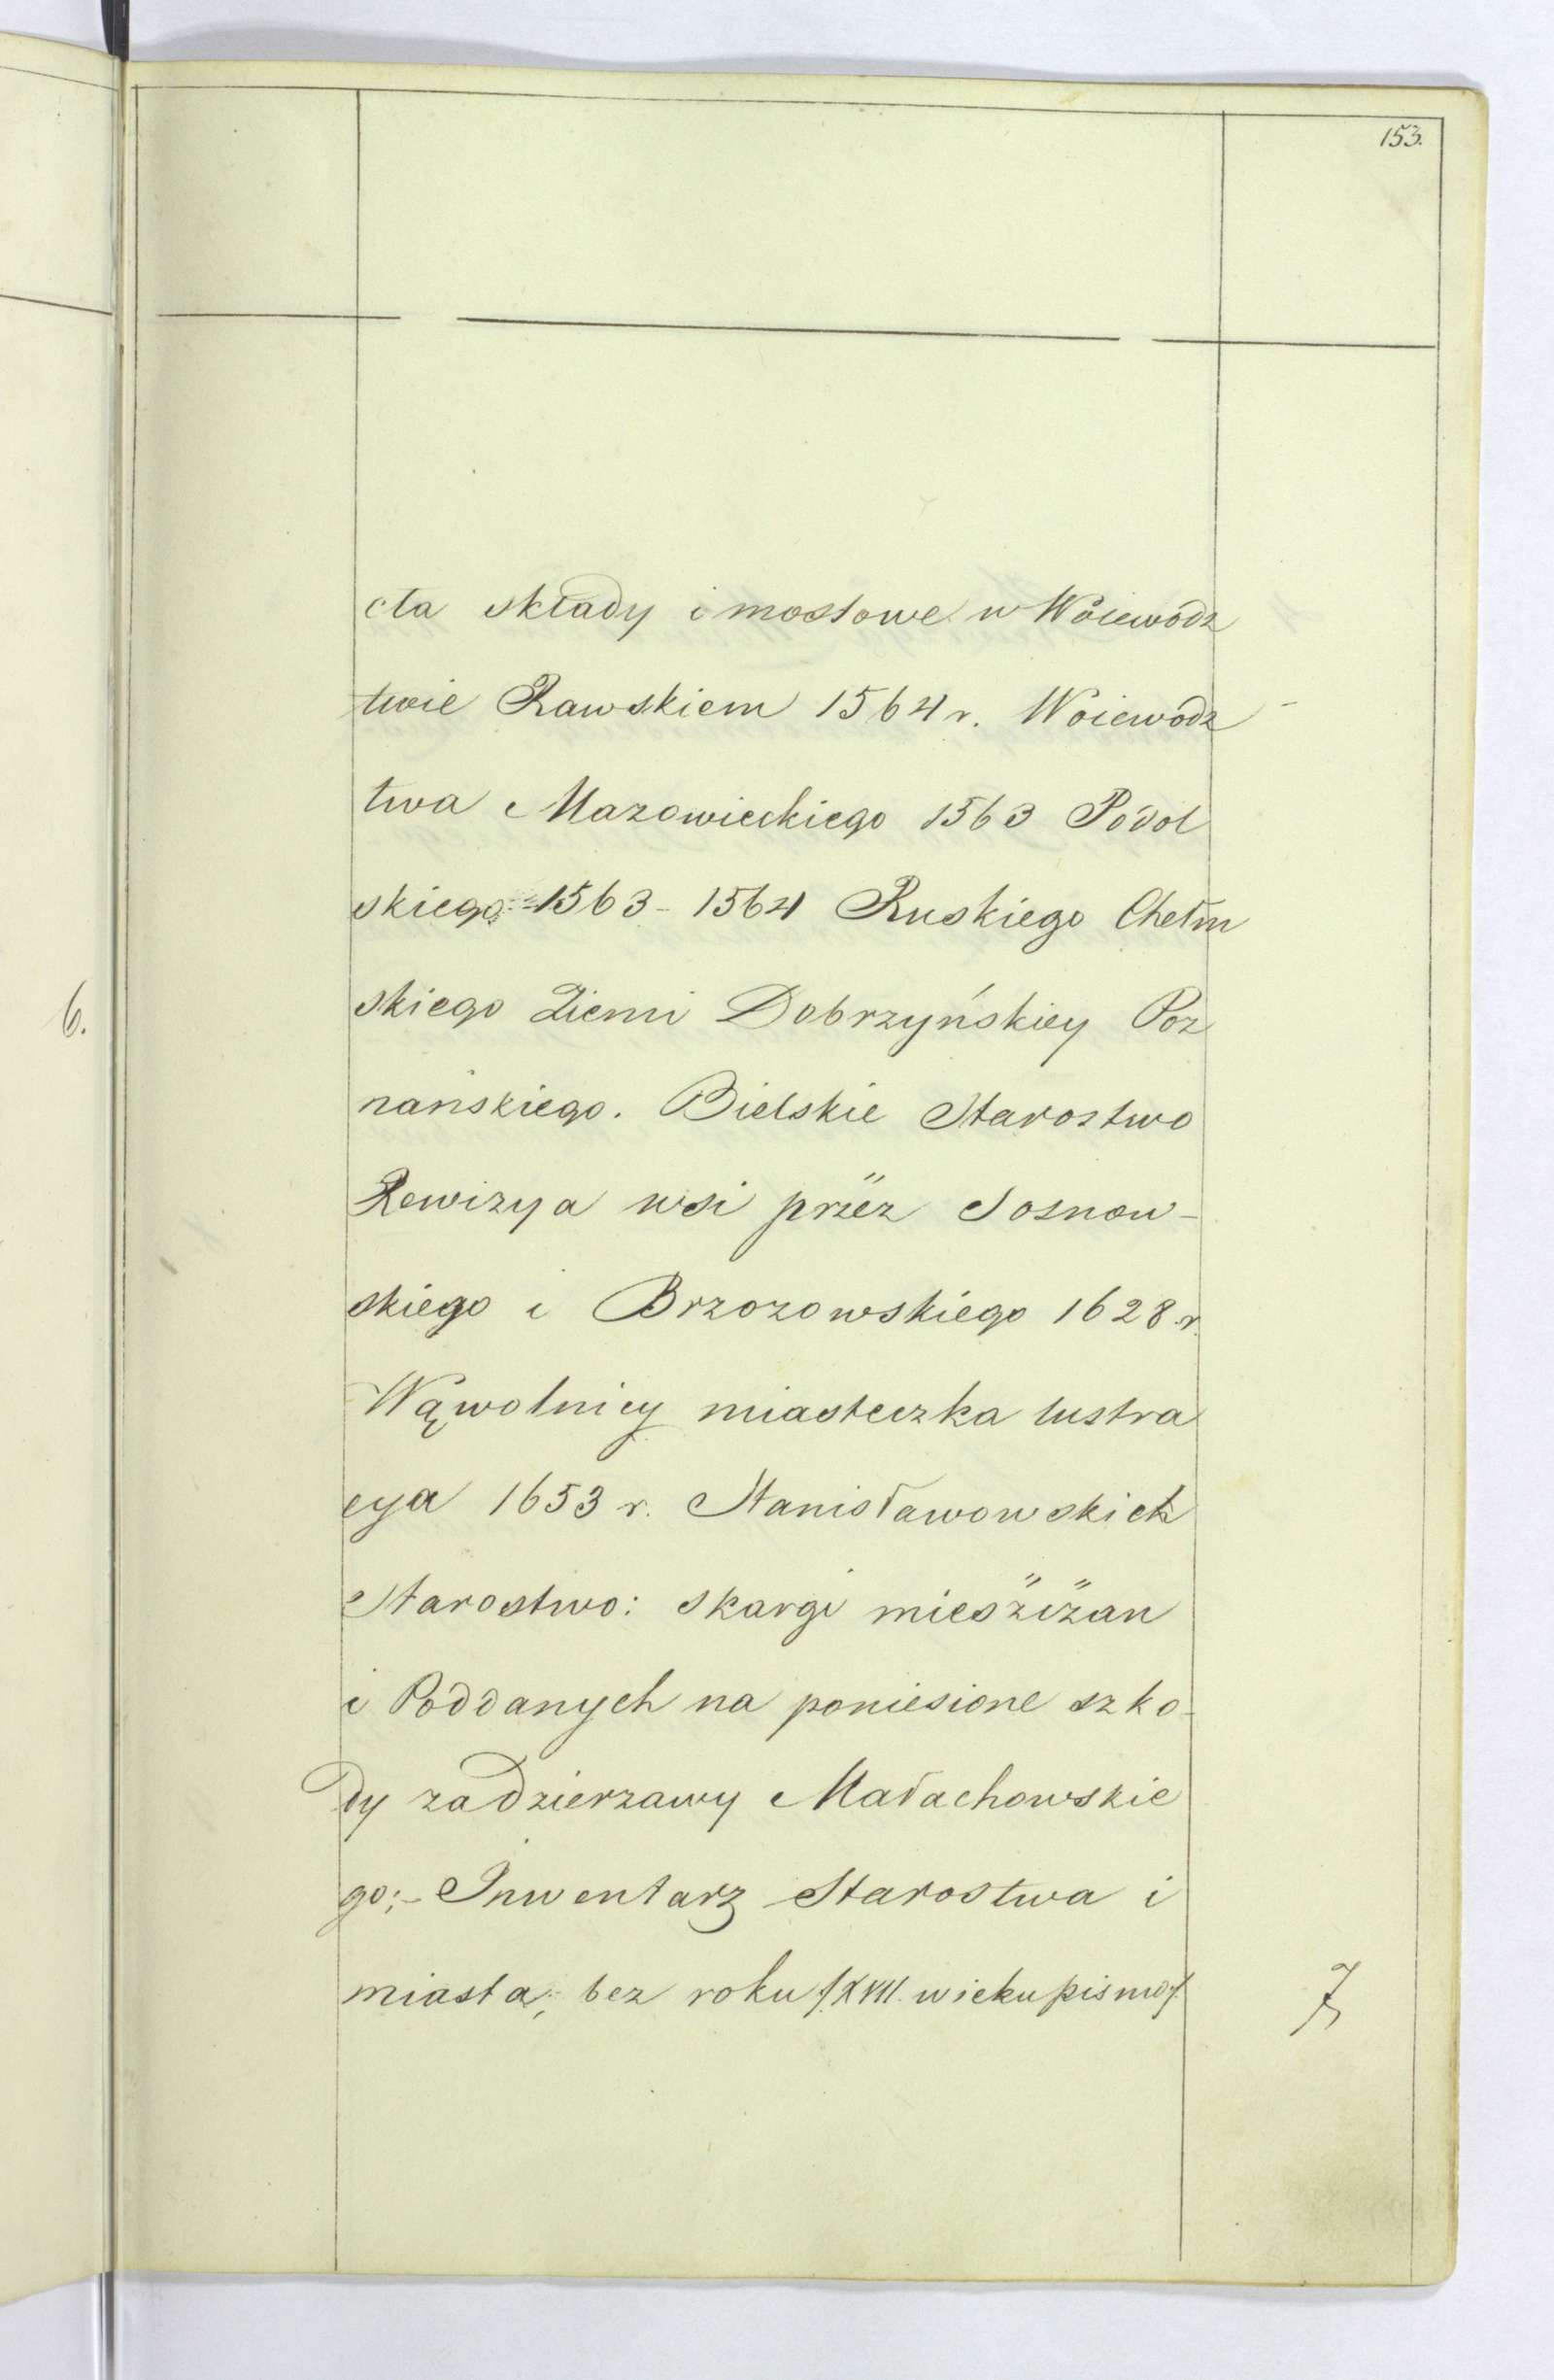 153.
cła składy i mostowe w Woiewódz
twie Rawskiem 1564 r. Woiewodz
twa Mazowieckiego 1563 Podol
skiego 1563 - 1564 Ruskiego Chełm
skiego Ziemi Dobrzyńskiey Poz
nańskiego. Bielskie Starostwo
6.
Rewizya wsi przez Sosnow-
skiego i Brzozowskiego 1628 r.
Wąwolnicy miasteczka lustra
cya 1653 r. Stanisławowskich
Starostwo: skargi mieszczan
i Poddanych na poniesione szko-
dy za dzierzawy Małachowskie
go;- Inwentarz Starostwa i
miasta; bez roku /:XVIII. wieku pismo:/
7